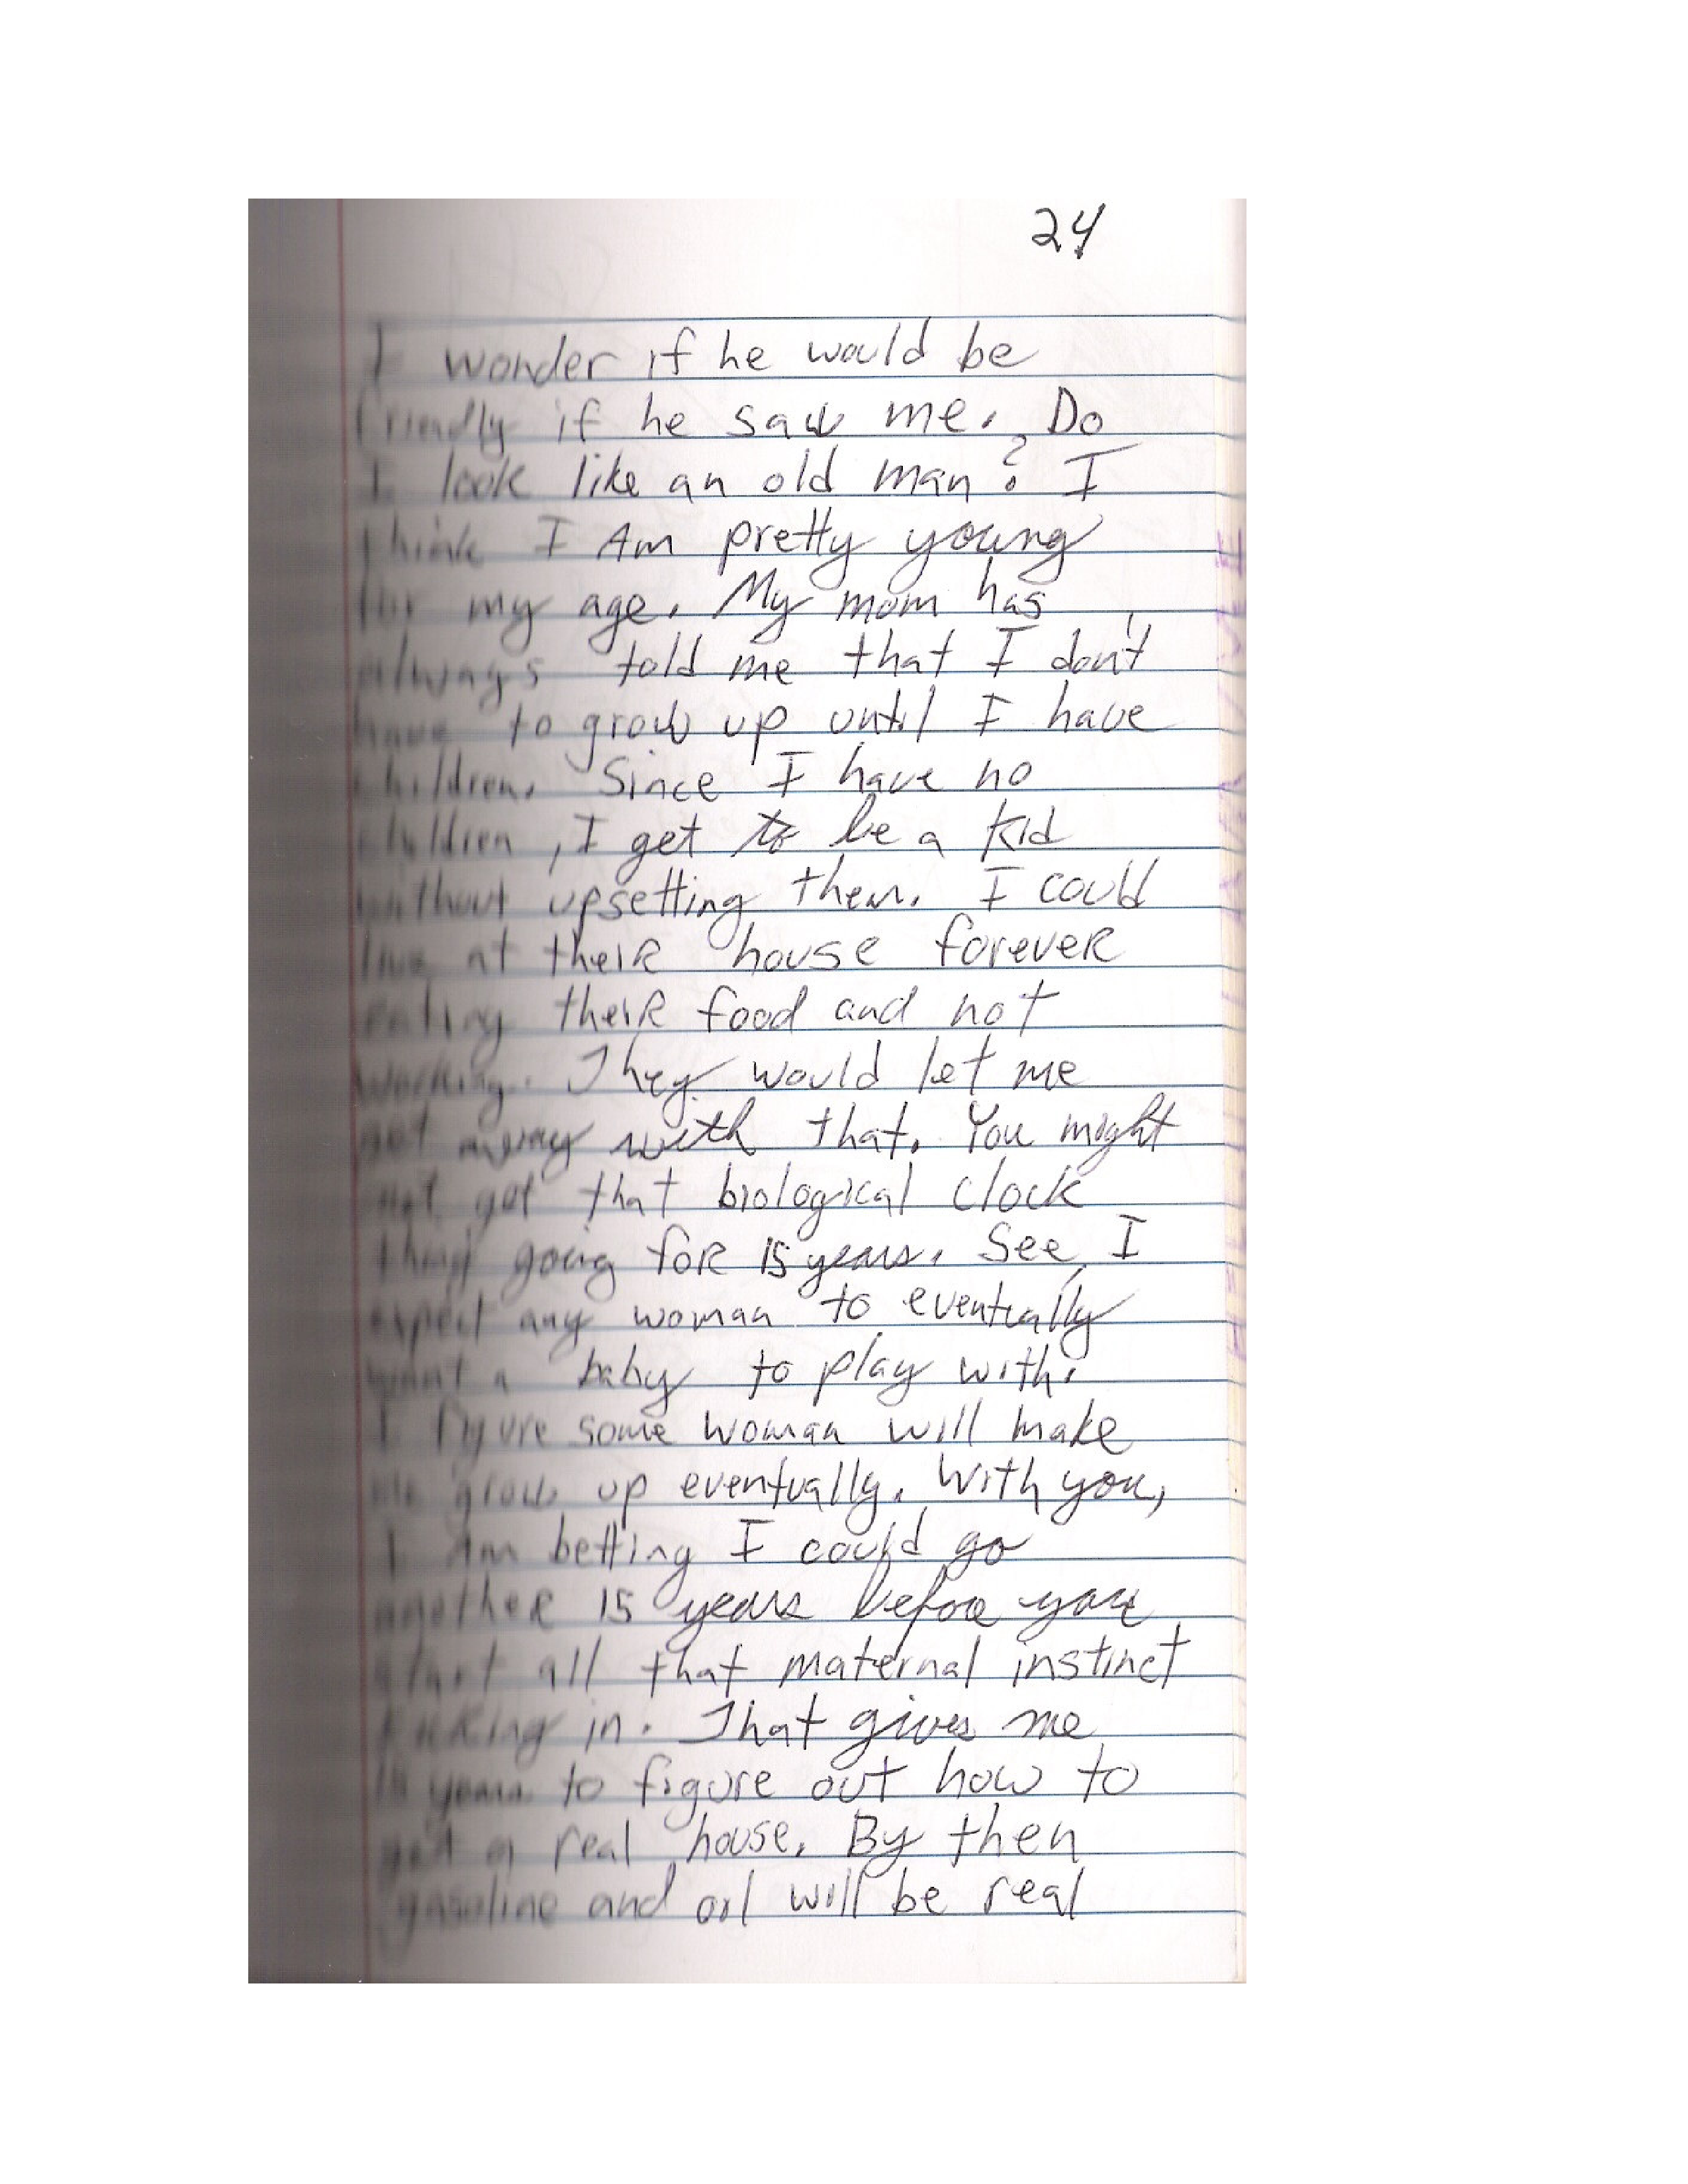 24
I wonder if he would be
friendly if he saw me. Do
I look like an old man? I
think I Am pretty young
for my age. My mom has
always told me that I don't
have to grow up until I have
children. Since I have no
children, I get to be a kid
without upsetting them. I could
live at their house forever
eating their food and not
working. They would let me
get away with that. You might
not get that biological clock
thing going for 15 years. See, I
expect any woman to eventually
want a baby to play with.
I figure some woman will make
me grow up eventually. With you,
I Am betting I could go
another 15 years before you
start all that maternal instinct
kicking in. That gives me
15 years to figure out how to
get a real house. By then
gasoline and oil will be real